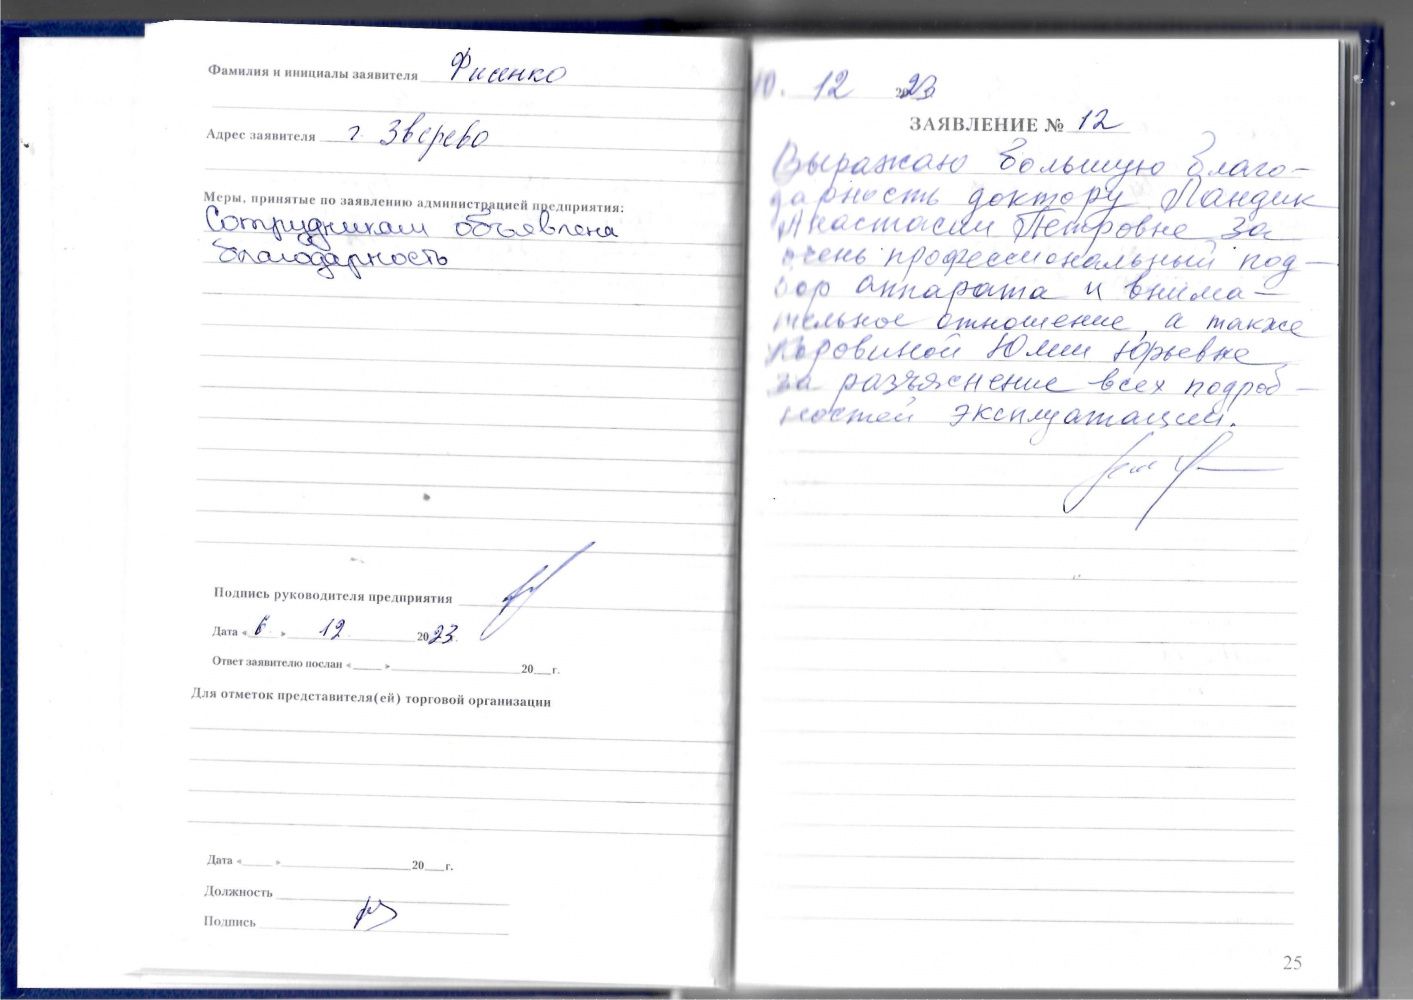 Фамилия и инициалы заявителя Фисенко
Адрес заявителя г. Зверево
Меры, принятые по заявлению администрацией предприятия:
Сотрудникам объявлена
благодарность
Подпись руководителя предприятия
Дата «6» 12 2023.
Ответ заявителю послан «____» ____ 20__г.
Для отметок представителя(ей) торговой организации
Дата «____» ____ 20__г.
Должность
Подпись
10. 12 2023
ЗАЯВЛЕНИЕ № 12
Выражаю большую благо-
дарность доктору Ландик
Анастасии Петровне за
очень профессиональный под-
бор аппарата и внима-
тельное отношение, а также
Коровиной Юлии Юрьевне
за разъяснение всех подроб-
ностей эксплуатации.
25